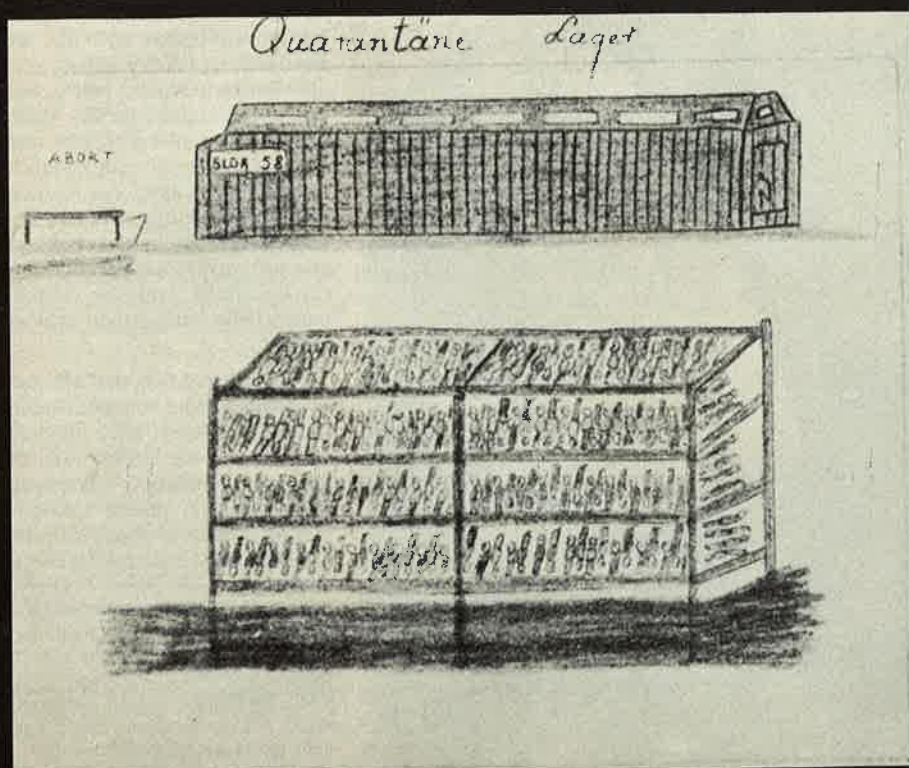 Quarantäne Lager
ABORT
BLOK 58